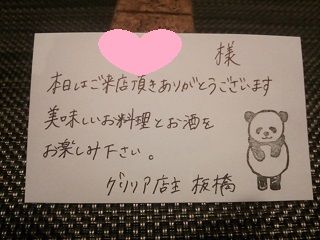 様
本日はご来店頂きありがとうございます
美味しいお料理とお酒を
お楽しみ下さい。
グリリア店主 板橋